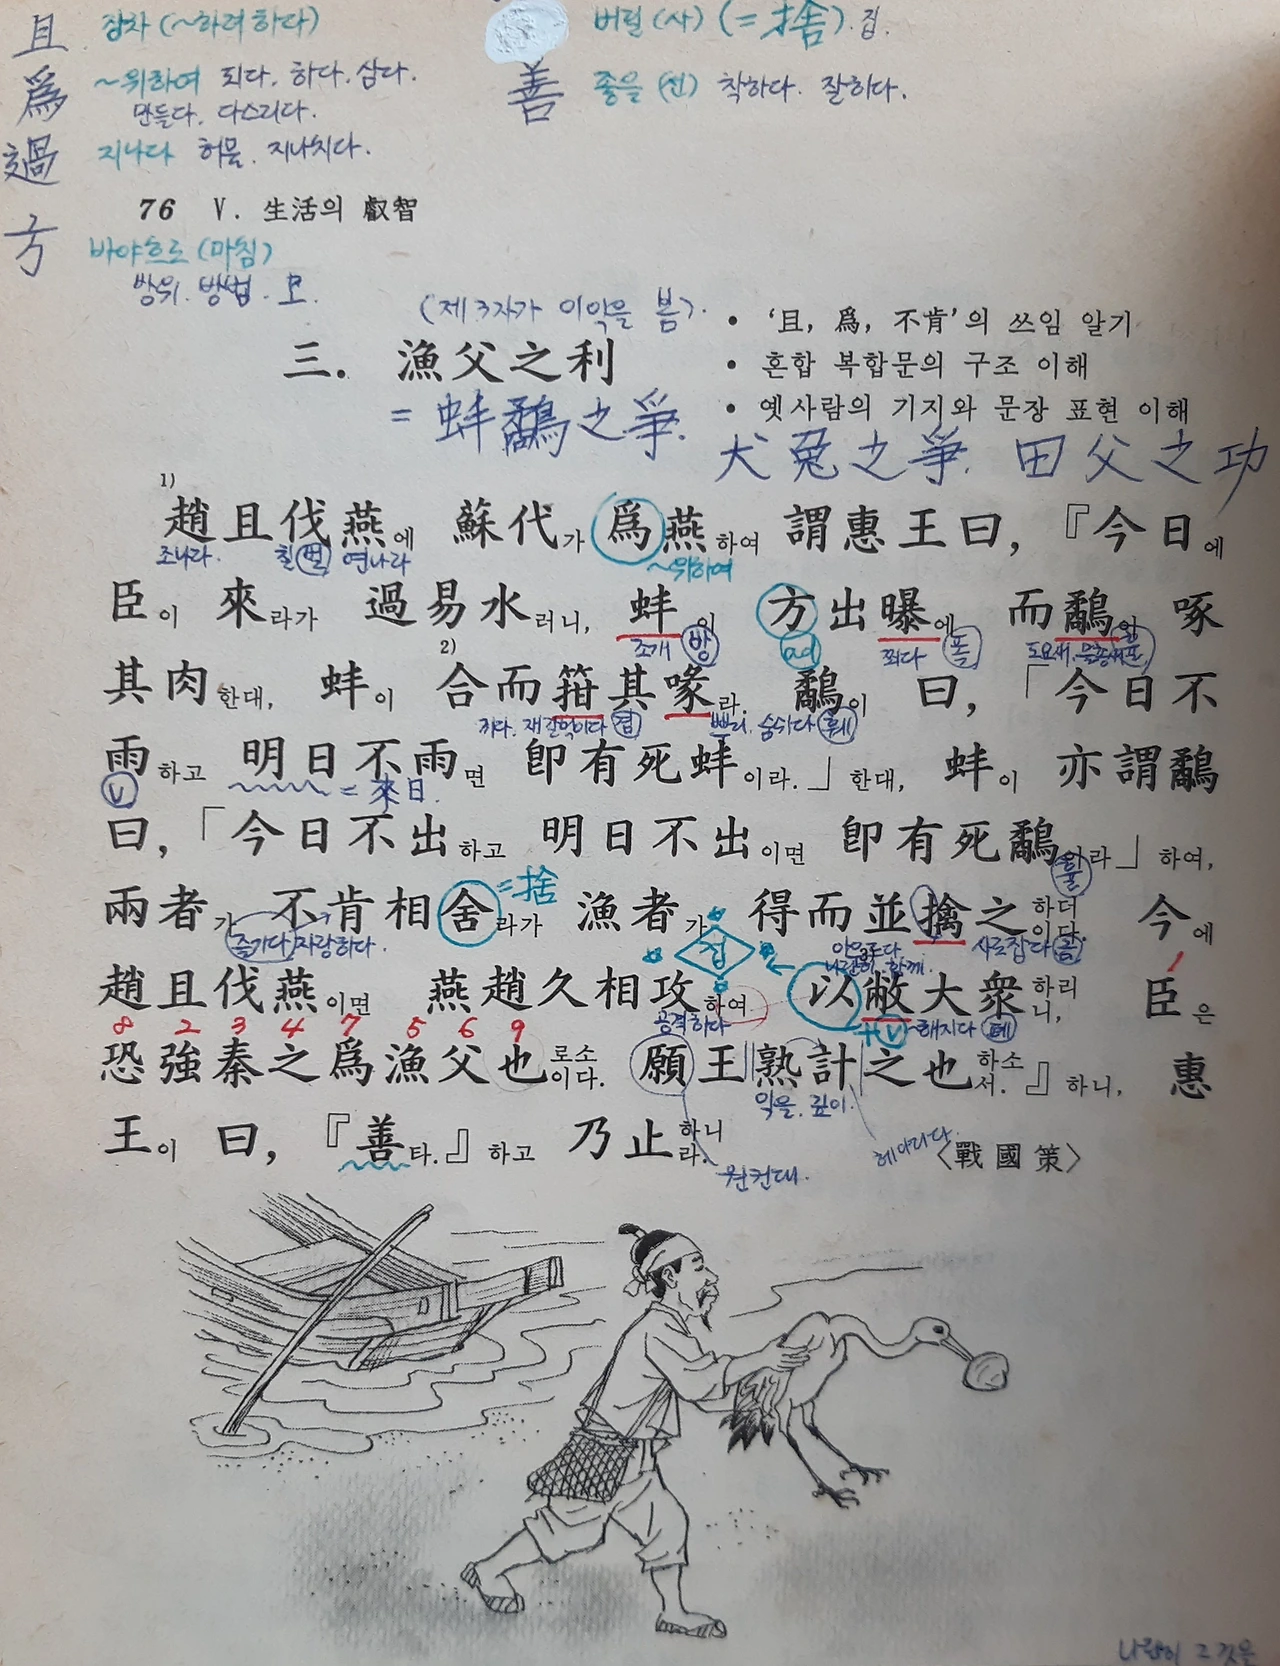 且 장차 (~하려하다) 버릴 (사) (=捨). 집.
爲 ~위하여 되다. 하다. 삼다. 善 좋을 (선) 착하다. 잘하다.
만들다. 다스리다.
過 지나다 허물. 지나치다.
76 V. 生活의 叡智
方 바야흐로 (마침)
방위. 방법. 모.
(제3자가 이익을 봄).
• ‘且, 爲, 不肯’의 쓰임 알기
三. 漁父之利
• 혼합 복합문의 구조 이해
= 蚌鷸之爭.
• 옛사람의 기지와 문장 표현 이해
犬兎之爭. 田父之功
1)
趙且伐燕에 蘇代가 爲燕하여 謂惠王曰, 『今日에
조나라. 칠 벌 연나라 ~위하여
臣이 來라가 過易水러니, 蚌이 方出曝에 而鷸이 啄
조개 방 ad 쬐다 폭 도요새.
2)
其肉한대, 蚌이 合而箝其喙라. 鷸이 曰, 「今日不
끼다. 재갈먹이다 겸 부리. 숨쉬다 훼
雨하고 明日不雨면 卽有死蚌이라.」한대, 蚌이 亦謂鷸
V = 來日.
曰, 「今日不出하고 明日不出이면 卽有死鷸이라」하여,
휼
兩者가 不肯相舍라가 漁者가 得而並擒之하더이다. 今에
=捨
즐기다, 자랑하다. 아우르다. 나란히. 함께. 사로잡다 금
접
趙且伐燕이면 燕趙久相攻하여 以敝大衆하리니, 臣은
공격하다 +V ~해지다 폐 1
8 2 3 4 7 5 6 9
恐強秦之爲漁父也로소이다. 願王熟計之也하소서.』하니, 惠
익을. 깊이.
王이 曰, 『善타.』하고 乃止하니라.
헤아리다.
〈戰國策〉
원컨대.
나란히 그것을